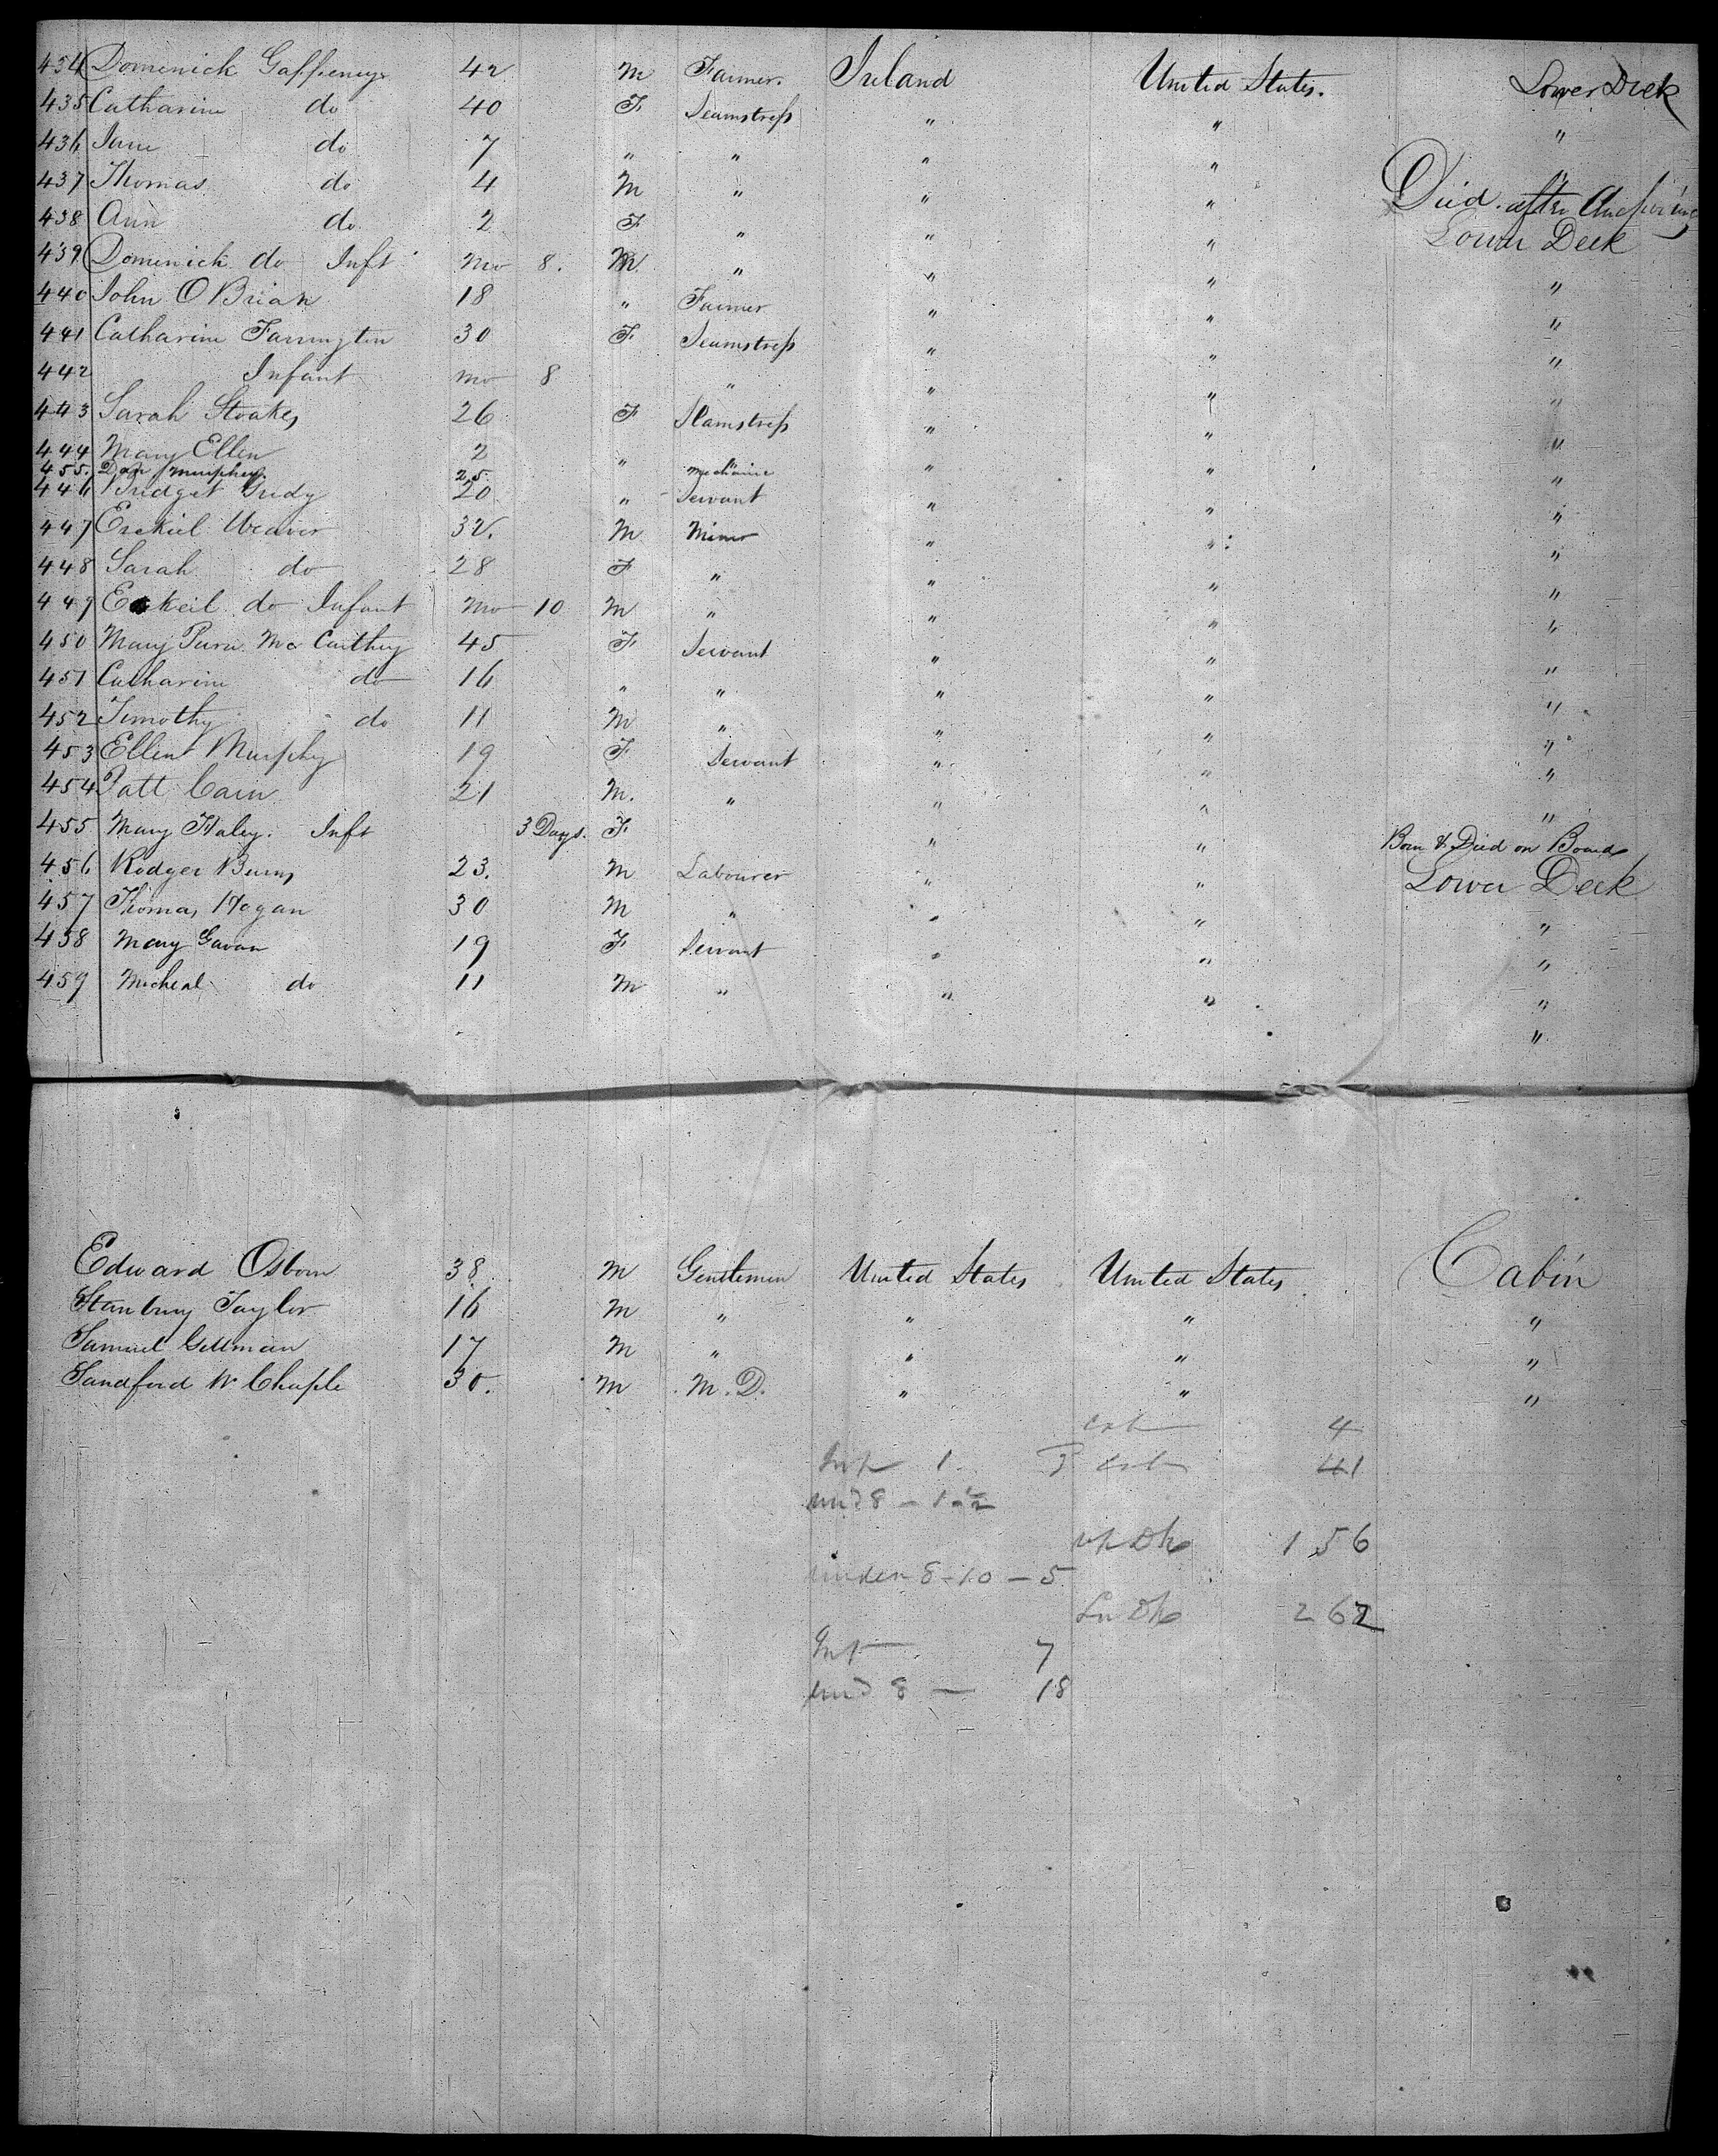 434 Domenick Gaffeney 42 M Farmer. Ireland United States. Lower Deck
435 Catharine do 40 F Seamstress " " "
436 Jane do 7 " " " " "
437 Thomas do 4 M " " " Died after Anchoring
438 Ann do 2 F " " " Lower Deck
439 Domenick do Inft mo 8. M " " " "
440 John O Brian 18 " Farmer " " "
441 Catharine Farrington 30 F Seamstress " " "
442 Infant mo 8 " " " "
443 Sarah Stoakes 26 F Seamstress " " "
444 Mary Ellen 2 " " " " "
455. Dan Murphey 25 Mechanic
446 Bridget Gredy 20 " Servant " " "
447 Ezekiel Weaver 32. M Miner " " "
448 Sarah do 28 F " " " "
449 Ezkeil do Infant mo 10 M " " " "
450 Mary Mc Carthey 45 F Servant " " "
451 Catharine do 16 " " " " "
452 Timothy do 11 M " " " "
453 Ellen Murphy 19 F Servant " " "
454 Patt Cain 21 M. " " " "
455 Mary Haley. Inft 3 Days. F " " Born & Died on Board
456 Rodger Burns 23. M Labourer " " Lower Deck
457 Thomas Hogan 30 M " " " "
458 Mary Gavan 19 F Servant " " "
459 Micheal do 11 M " " " "
"
Edward Osborn 38 M Gentlemen United States United States Cabin
Stanbury Taylor 16 M " " " "
Samuel Gillman 17 M " " " "
Sandford W Chaple 30. M M.D. " " "
cab 4
Inf 1 cab 41
und 8 - 1
up Dk 156
under 8 - 10 - 5
Lw Dk 262
Inf 7
und 8 - 18